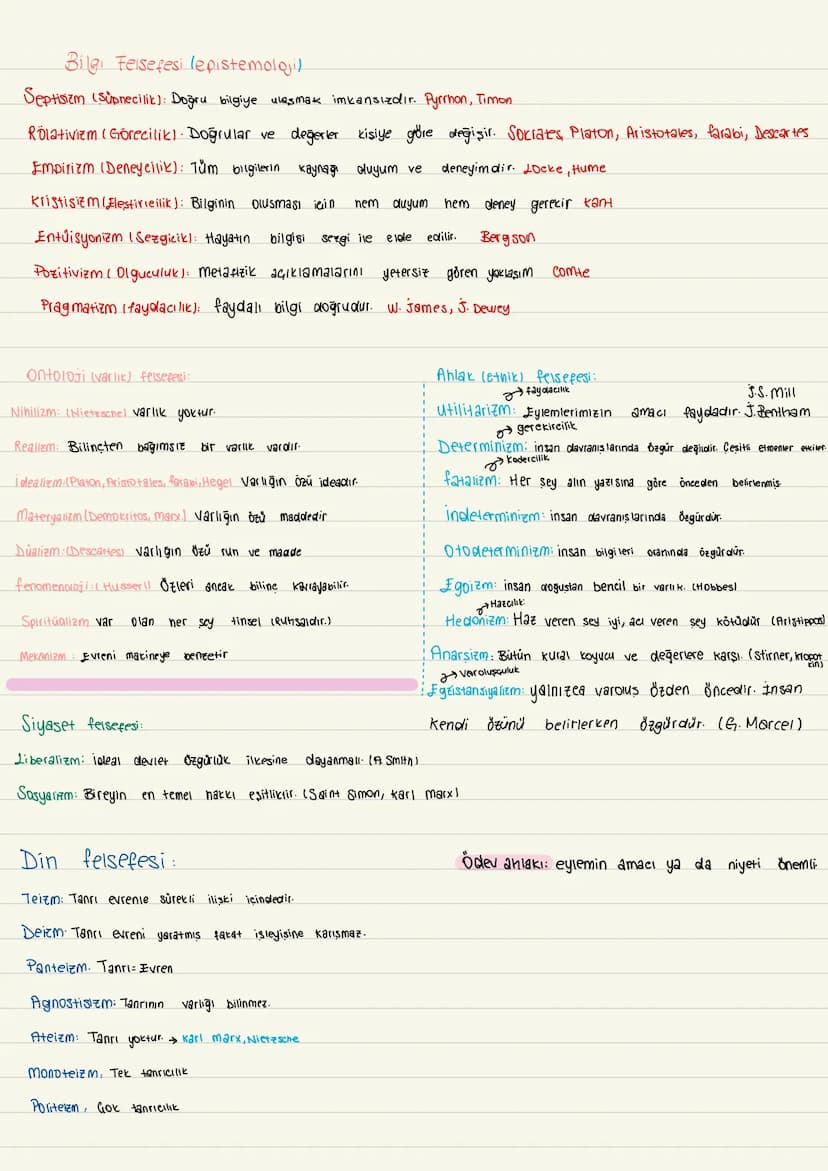 Bilgi Felsefesi (epistemoloji)
Septisizm (Şüphecilik): Doğru bilgiye ulaşmak imkansızdır. Pyrrhon, Timon
Rölativizm (Görecilik): Doğrular ve değerler kişiye göre değişir. Sokrates, Platon, Aristotales, farabi, Descartes
Empirizm (Deneycilik): Tüm bilgilerin kaynağı duyum ve deneyimdir. Locke, Hume
Kristisizm (Eleştiricilik): Bilginin oluşması için hem duyum hem deney gerekir kant
Entüisyonizm (Sezgicik): Hayatın bilgisi sezgi ile elde edilir. Bergson
Pozitivizm (Olguculuk): metafizik açıklamalarını yetersiz gören yaklaşım Comte
Pragmatizm (faydacılık): faydalı bilgi doğrudur. W. James, J. Dewey
Ontoloji (varlık) felsefesi:
Nihilizm: (Nietzsche) varlık yoktur.
Realizm: Bilinçten bağımsız bir varlık vardır.
idealizm: (Platon, Aristotales, farabi, Hegel) Varlığın özü ideadır.
Materyalizm (Demokritos, marx) Varlığın özü maddedir
Düalizm: (Descartes) varlığın özü ruh ve madde
fenomenoloji: (Husserl) Özleri ancak bilinç kavrayabilir.
Spiritüalizm var olan her şey tinsel (Ruhsaldır.)
Mekanizm : Evreni makineye benzetir
Ahlak (Etnik) felsefesi:
→ faydacılık
J.S. Mill
Utilitarizm: Eylemlerimizin amacı faydadır. J. Bentham
→ gerekircilik
Determinizm: insan davranışlarında özgür değildir. Çeşitli etmenler etkiler
→ kadercilik
fatalizm: Her şey alın yazısına göre önceden belirlenmiş
İndeterminizm: insan davranışlarında özgürdür.
Otodeterminizm: insan bilgileri oranında özgürdür.
Egoizm: insan doğuştan bencil bir varlık. (Hobbes)
→ Hazcılık
Hedonizm: Haz veren şey iyi, acı veren şey kötüdür (Aristippos)
Anarşizm: Bütün kural koyucu ve değerlere karşı. (Stirner, kropotkin)
→ Varoluşçuluk
Egzistansiyalizm: yalnızca varoluş özden öncedir. İnsan
kendi özünü belirlerken özgürdür. (G. Marcel)
Siyaset felsefesi:
Liberalizm: ideal devlet özgürlük ilkesine dayanmalı. (A Smith)
Sosyalizm: Bireyin en temel hakkı eşitliktir. (Saint Simon, karl marx)
Din felsefesi :
Ödev ahlakı: eylemin amacı ya da niyeti önemli
Teizm: Tanrı evrenle sürekli ilişki içindedir.
Deizm: Tanrı evreni yaratmış fakat işleyişine karışmaz.
Panteizm. Tanrı = Evren
Agnostisizm: Tanrının varlığı bilinmez.
Ateizm: Tanrı yoktur. → karl marx, Nietzsche
monoteizm, Tek tanrıcılık
Politeizm, Çok tanrıcılık